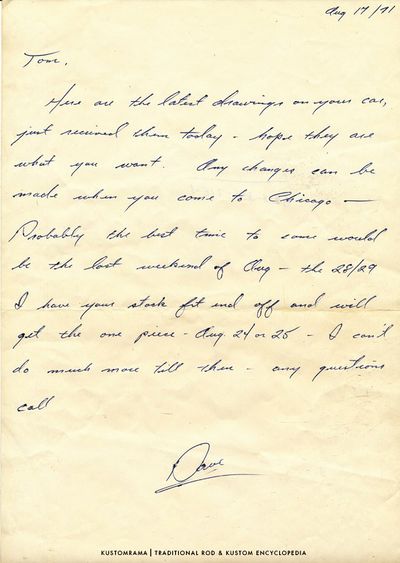 Aug 17/71
Tom,
Here are the latest drawings on your car,
just received them today - hope they are
what you want. Any changes can be
made when you come to Chicago -
Probably the best time to come would
be the last weekend of Aug - the 28/29
I have your stock fit end off and will
get the one piece - Aug. 24 or 25 - I can't
do much more till then - any questions
call
Dave
KUSTOMRAMA | TRADITIONAL ROD & KUSTOM ENCYCLOPEDIA